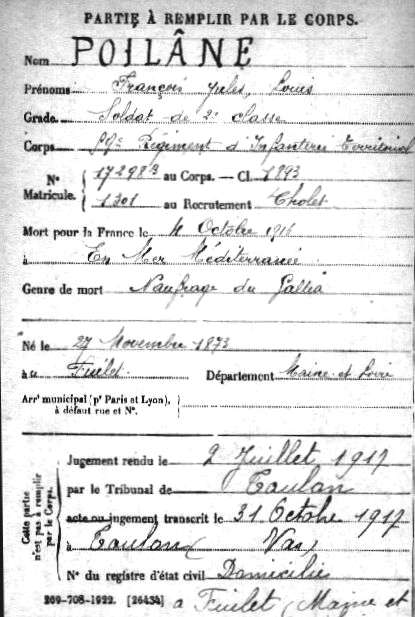 PARTIE À REMPLIR PAR LE CORPS.
Nom POILÂNE
Prénoms François Jules, Louis
Grade Soldat de 2e classe
Corps Régiment d'Infanterie Territorial
N° Matricule. 17298 au Corps. — Cl. 1893
1301 au Recrutement Cholet
Mort pour la France le 4 Octobre 1916
à En Mer Méditerranée
Genre de mort Naufrage du Gallia
Né le 27 Novembre 1873
à Fuilet Département Maine-et-Loire
Arrt municipal (pr Paris et Lyon), à défaut rue et N°.
Cette partie n'est pas à remplir par le Corps.
Jugement rendu le 2 Juillet 1917
par le Tribunal de Toulon
acte ou jugement transcrit le 31 Octobre 1917
à Toulon (Var)
N° du registre d'état civil Domicilié
269-708-1922. [26434] à Fuilet (Maine et